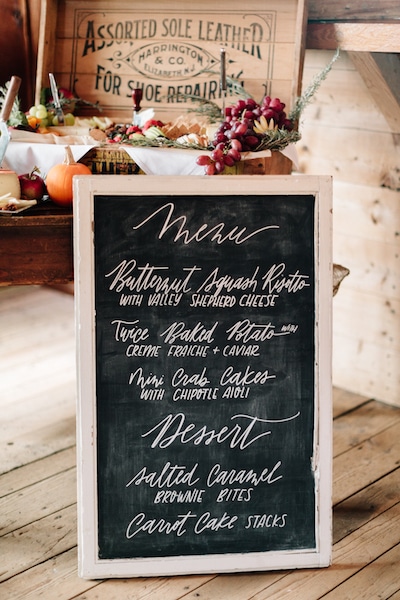 ASSORTED SOLE LEATHER
HARRINGTON
& CO.
ELIZABETH N.J.
FOR SHOE REPAIRING
Menu
Butternut Squash Risotto
WITH VALLEY SHEPHERD CHEESE
Twice Baked Potato WITH
CREME FRAICHE + CAVIAR
Mini Crab Cakes
WITH CHIPOTLE AIOLI
Dessert
Salted Caramel
BROWNIE BITES
Carrot Cake STACKS